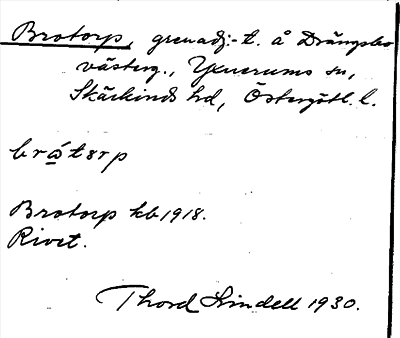 Brotorp, grenadj:-t. å Drängsbo
västerg., Yxnerums sn,
Skärkinds hd, Östergötl. l.
brótorp
Brotorp kb 1918.
Rivet.
Thord Lindell 1930.